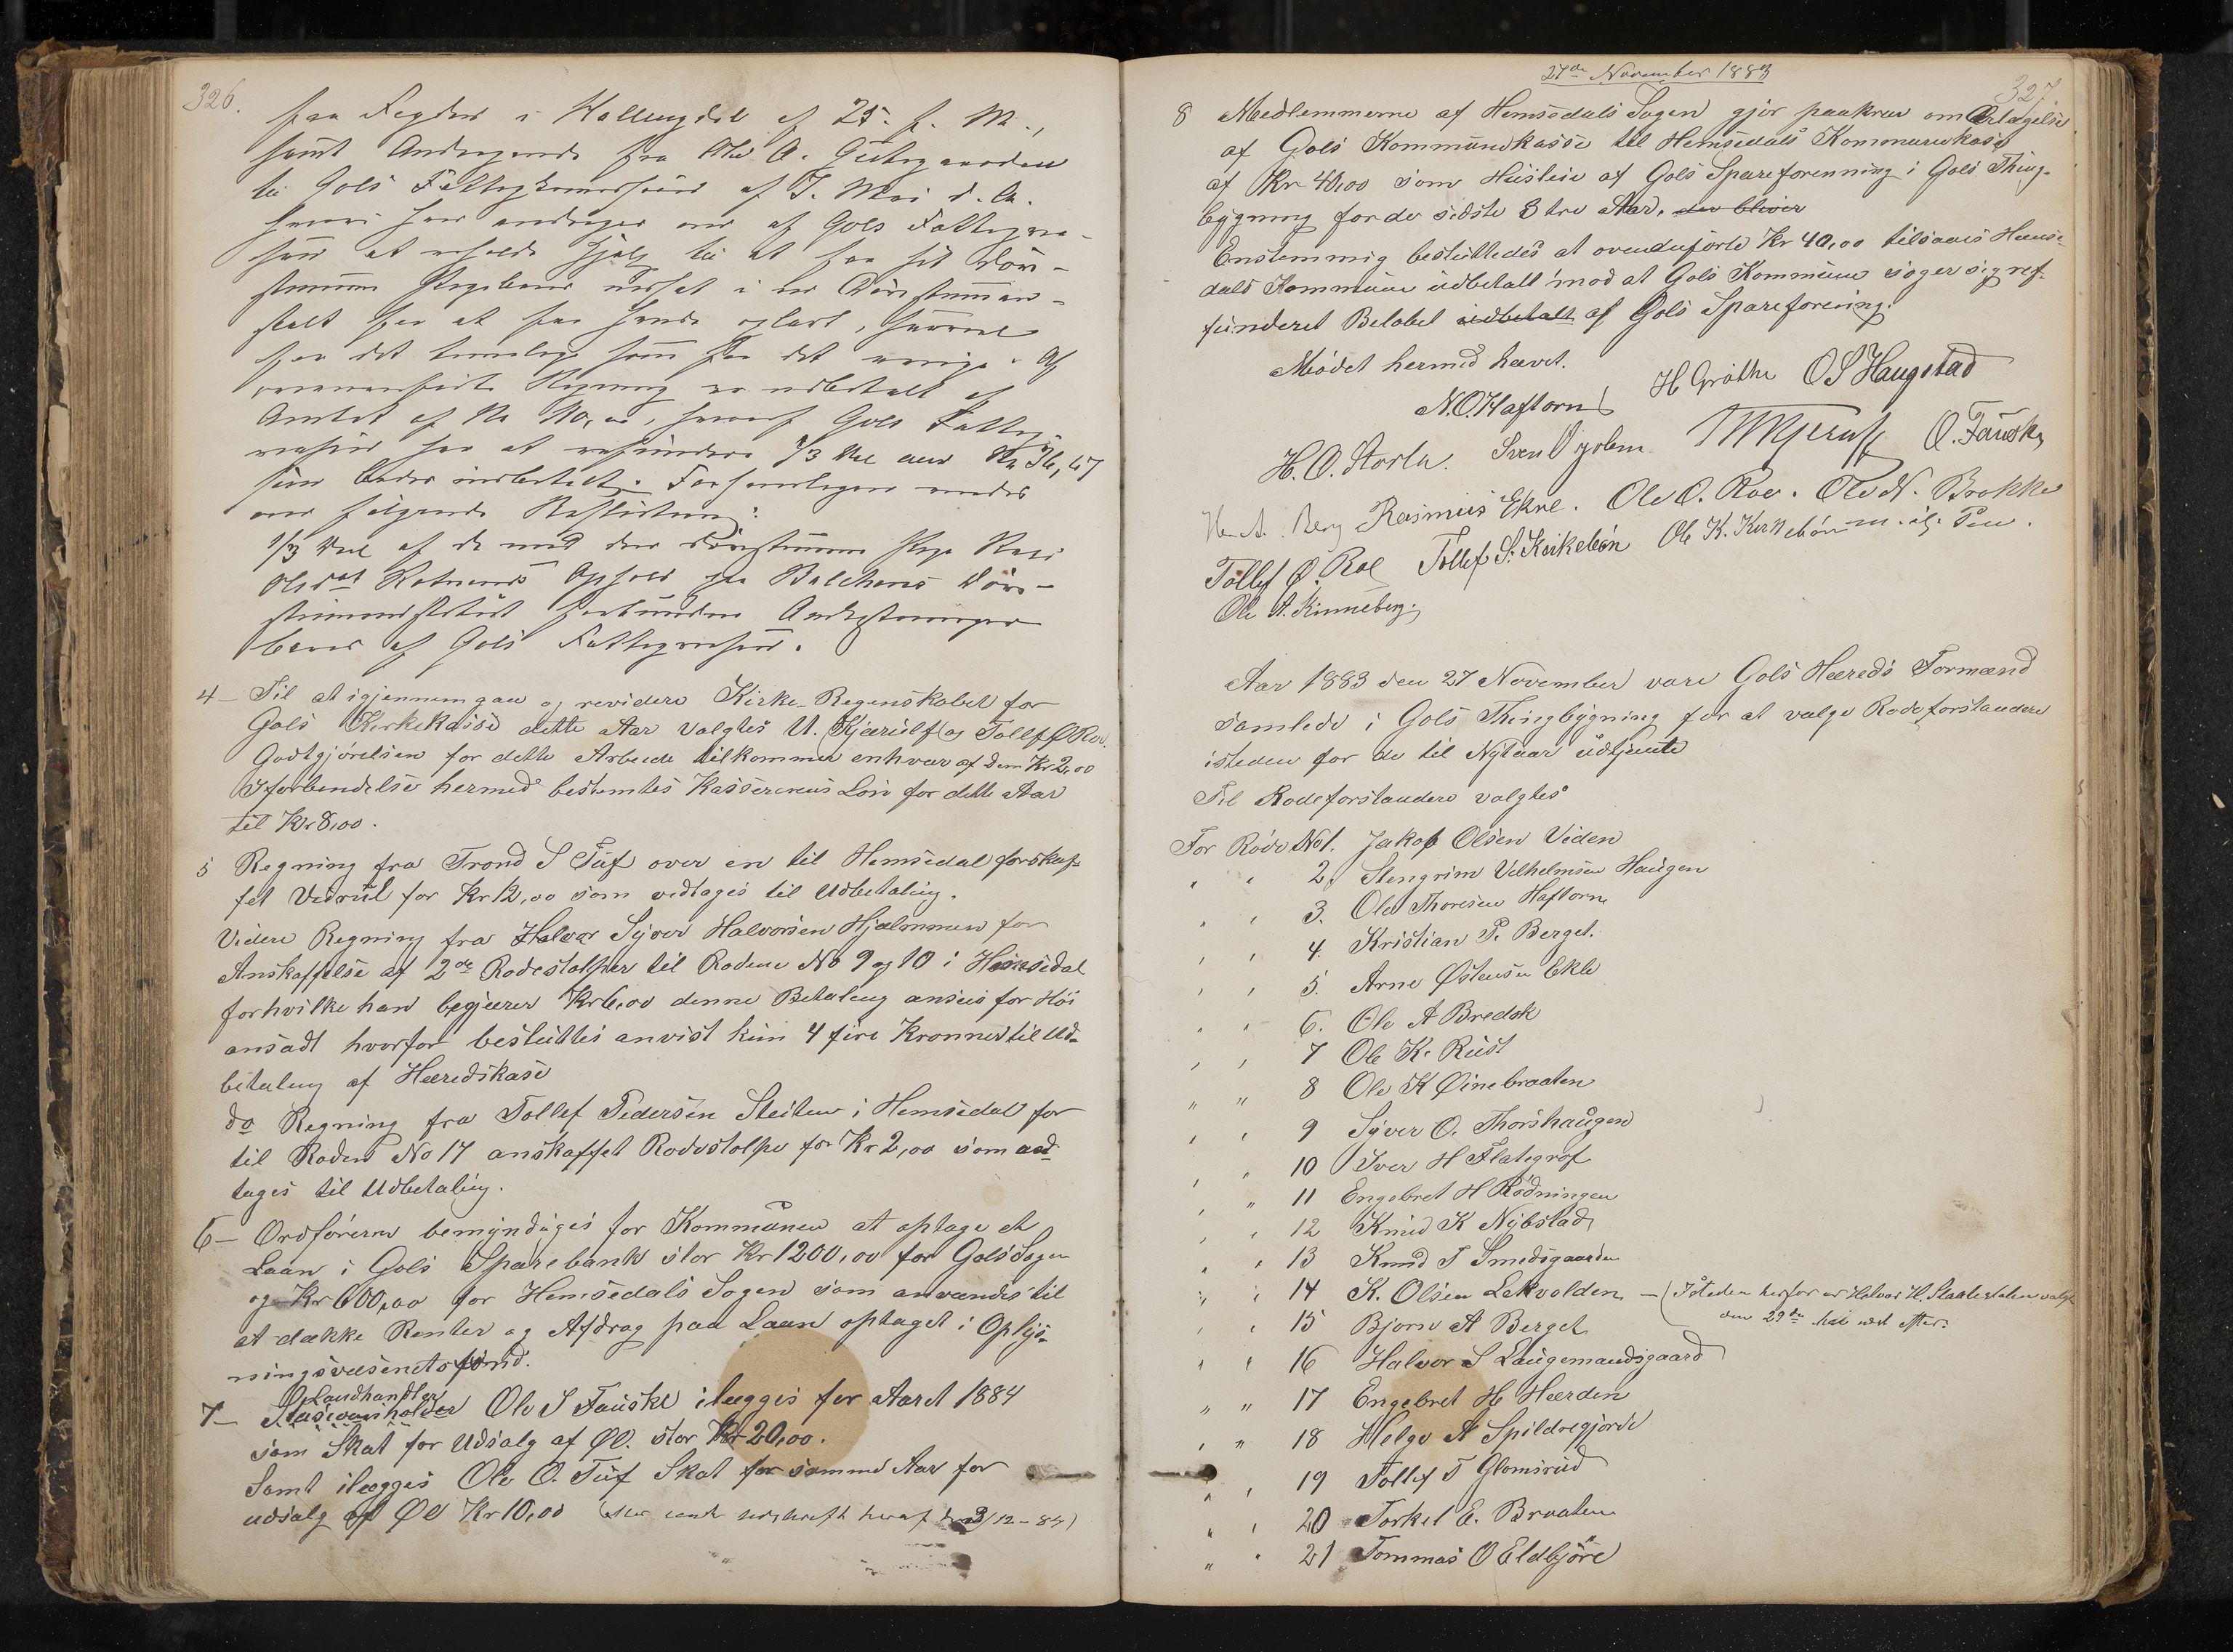 326.
fra Fogden i Hallingdal af 25. f. M.,
samt Andragende fra Ole O.
til Gols Fattigkommission af 7. Mai d. A.
hvori han andrager om af Gols Fattigvæ-
sen at erholde Hjælp til at faa sit døv-
stumme Pigebarn indsat i en Døvstumman-
stalt for at faa hende oplært,
for det som for det øvrige. Af
Regning er udbetalt af
Amtet af Kr hvoraf Gols Fattig-
væsen har at refundere 1/3 Del
som bedes indbetalt. Forsamlingen
om følgende Beslutning:
1/3 Del af de med den døvstumme Pige
Olsdat Ophold paa Balchens Døv-
stummeinstitut forbundne Omkostninger
bæres af Gols Fattigvæsen.
4 – Til at igjennemgaa og revidere Kirke-Regenskabet for
Gols Kirkekasse dette Aar valgtes U. Kjærulf og Tollef Ø Roe.
Godtgjörelsen for dette Arbeide tilkommer enhver af dem Kr 2,00
Iforbindelse hermed bestemtes Kassererens Lön for dette Aar
til Kr 8,00.
5 Regning fra Trond S Tuf over en til Hemsedal forskaf-
fet Vedrul for Kr 12,00 som vedtages til Udbetaling.
Videre Regning fra Halvor Syver Halvorsen Hjælmmen for
Anskaffelse af 2de Rodestolper til Rodene No 9 og 10 i Hemsedal
forhvilke han begjærer Kr 6,00 denne Betaling ansees for Höi
ansadt hvorfor besluttes anvist kun 4 fire Kronner til Ud-
betaling af Heredskase
do Regning fra Tollef Pedersen Sleiten i Hemsedal for
til Roden No 17 anskaffet Rodestolpe for Kr 2,00 som ved-
tages til Udbetaling.
6 – Ordföreren bemyndiges for Kommunen at optage et
Laan i Gols Sparebank stor Kr 1200,00 for Gols Sogen
og Kr 600,00 for Hemsedals Sogen som anvendes til
at dække Renter og Afdrag paa Laan optaget i Oplys-
ningsvæsenets fond.
Landhandler
7 – Ole S Fauske ilægges for Aaret 1884
som Skat for Udsalg af Øl. stor Kr 20,00.
Samt ilægges Ole O. Tuf Skat for samme Aar for
udsalg af Øl Kr 10,00 heraf 3/12-84)
27de November 1883
327
8 Medlemmerne af Hemsedals Sogen gjör paakrav om Ærlægelse
af Gols Kommunekasse til Hemsedals Kommunekase
af Kr 40,00 som Husleie af Gols Spareforenning i Gols Thing-
bygning for de sidste 3 tre Aar. der bliver
Enstemmig besluttedes at ovenanförte Kr 40,00 tilsaais Hemse-
dals Kommune udbetalt mod at Gols Kommune söger sig ref-
funderet Belöbet udbetalt af Gols Spareforening.
Mödet hermed hævet.
N.O. Haftorn H Gröthe O S Haugstad
H. O. Storla. Sven O. Fauske
Berg Rasmus Ekre. Ole O. Roe. Ole N. Brokke
Tollef Ø. Roe Tollef S. Kirkebön Ole K. Kirkebön
Ole A. Kinneberg.
Aar 1883 den 27 November vare Gols Hereds Formænd
samlede i Gols Thingbygning for at vælge Rodeforstandere
isteden for de til Nytaar udtjente
Til Rodeforstandere valgtes
For Rode No 1. Jakob Olsen Viden
" " 2. Stengrim Vilhelmsen Haugen
" " 3. Ole Thoresen Haftorn
" " 4. Kristian P. Berget.
" " 5. Arne Østensen Ekle
" " 6. Ole A Bredok
" " 7 Ole K. Rust
" " 8 Ole K Øinebraaten
" " 9 Syver O. Thorshaugen
" " 10 Iver H Flategraf
" " 11 Engebret H Rödningen
" " 12 Knud K Nybstad
" " 13 Knud T Smedsgaarden
" " 14 K. Olsen Lekvolden – (Isteden herfor er Halvor H. valgt
den 29de
" " 15 Bjorn A Berget
" " 16 Halvor S Laugemandsgaard
" " 17 Engebret H Hærden
" " 18 Helge A Spildregjorde
" " 19 Tollef T Glomsrud
" " 20 Torkel E. Braaten
" " 21 Tommas O Eldbjöre